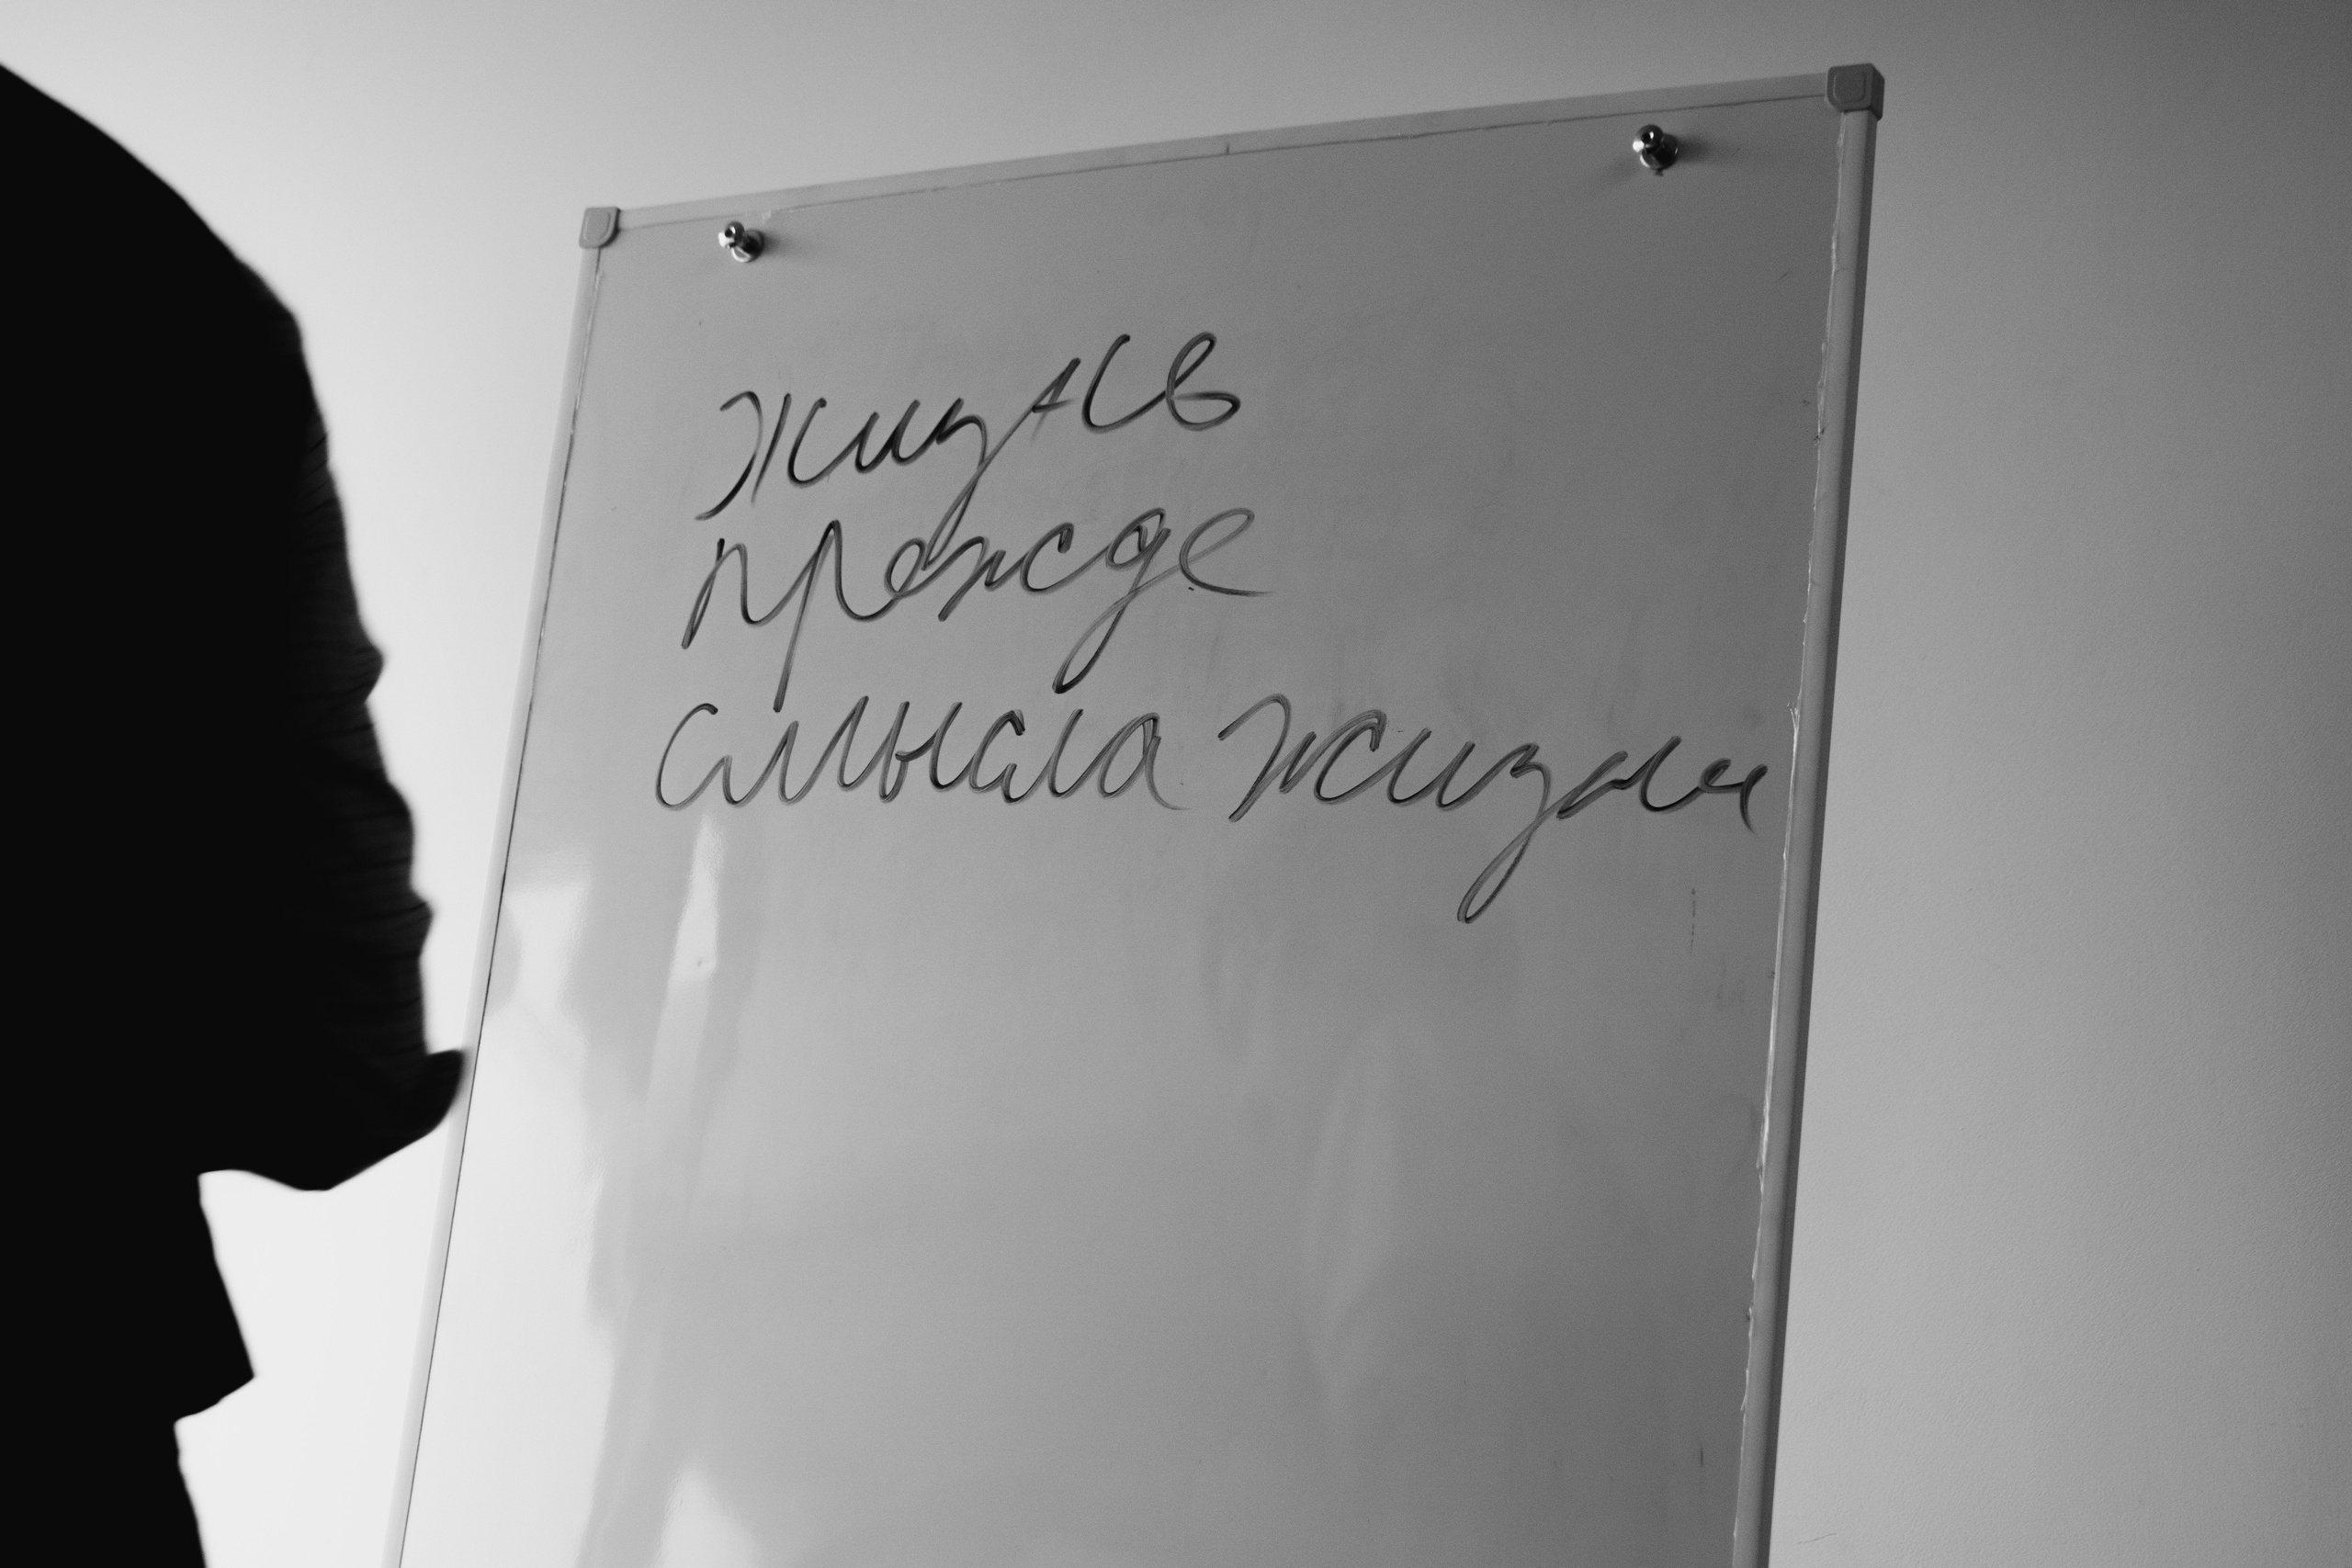 жизнь
прежде
смысла жизни